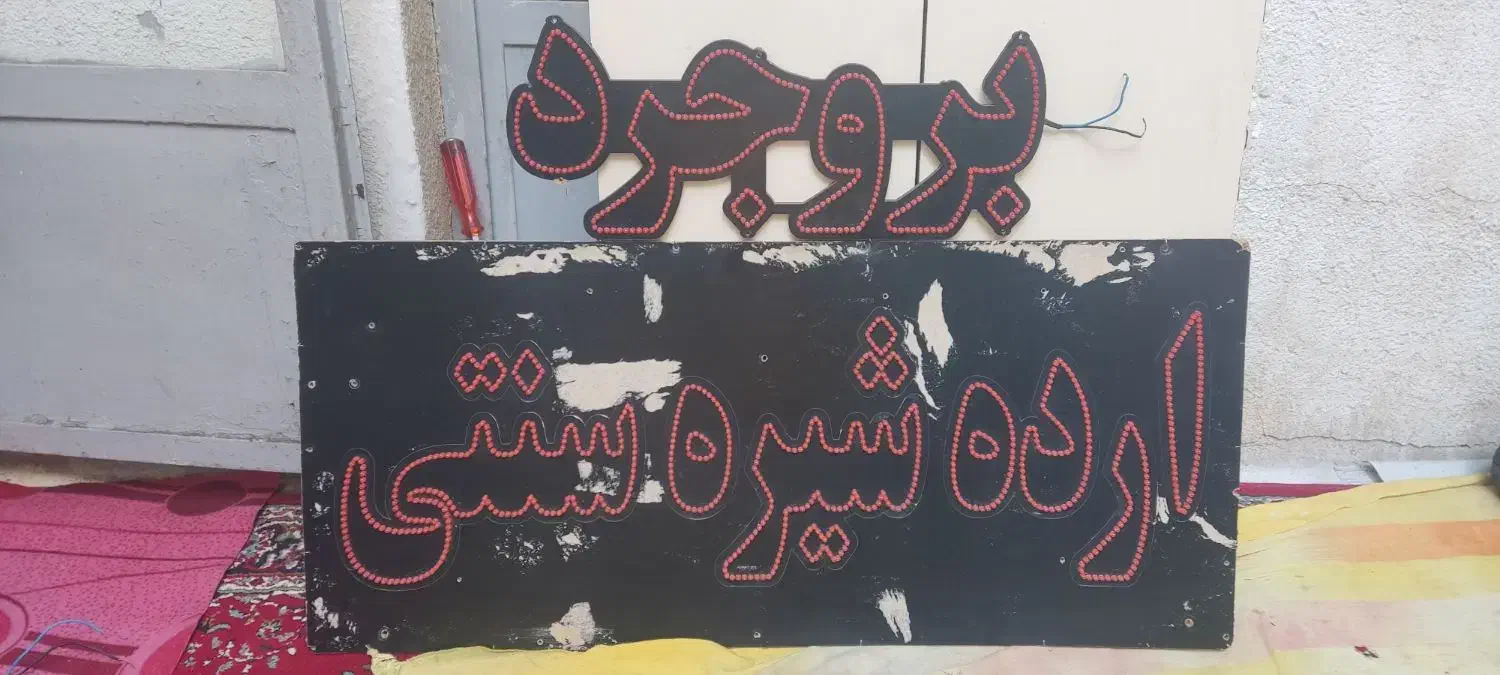 بروجرد
ارده شیره سنتی